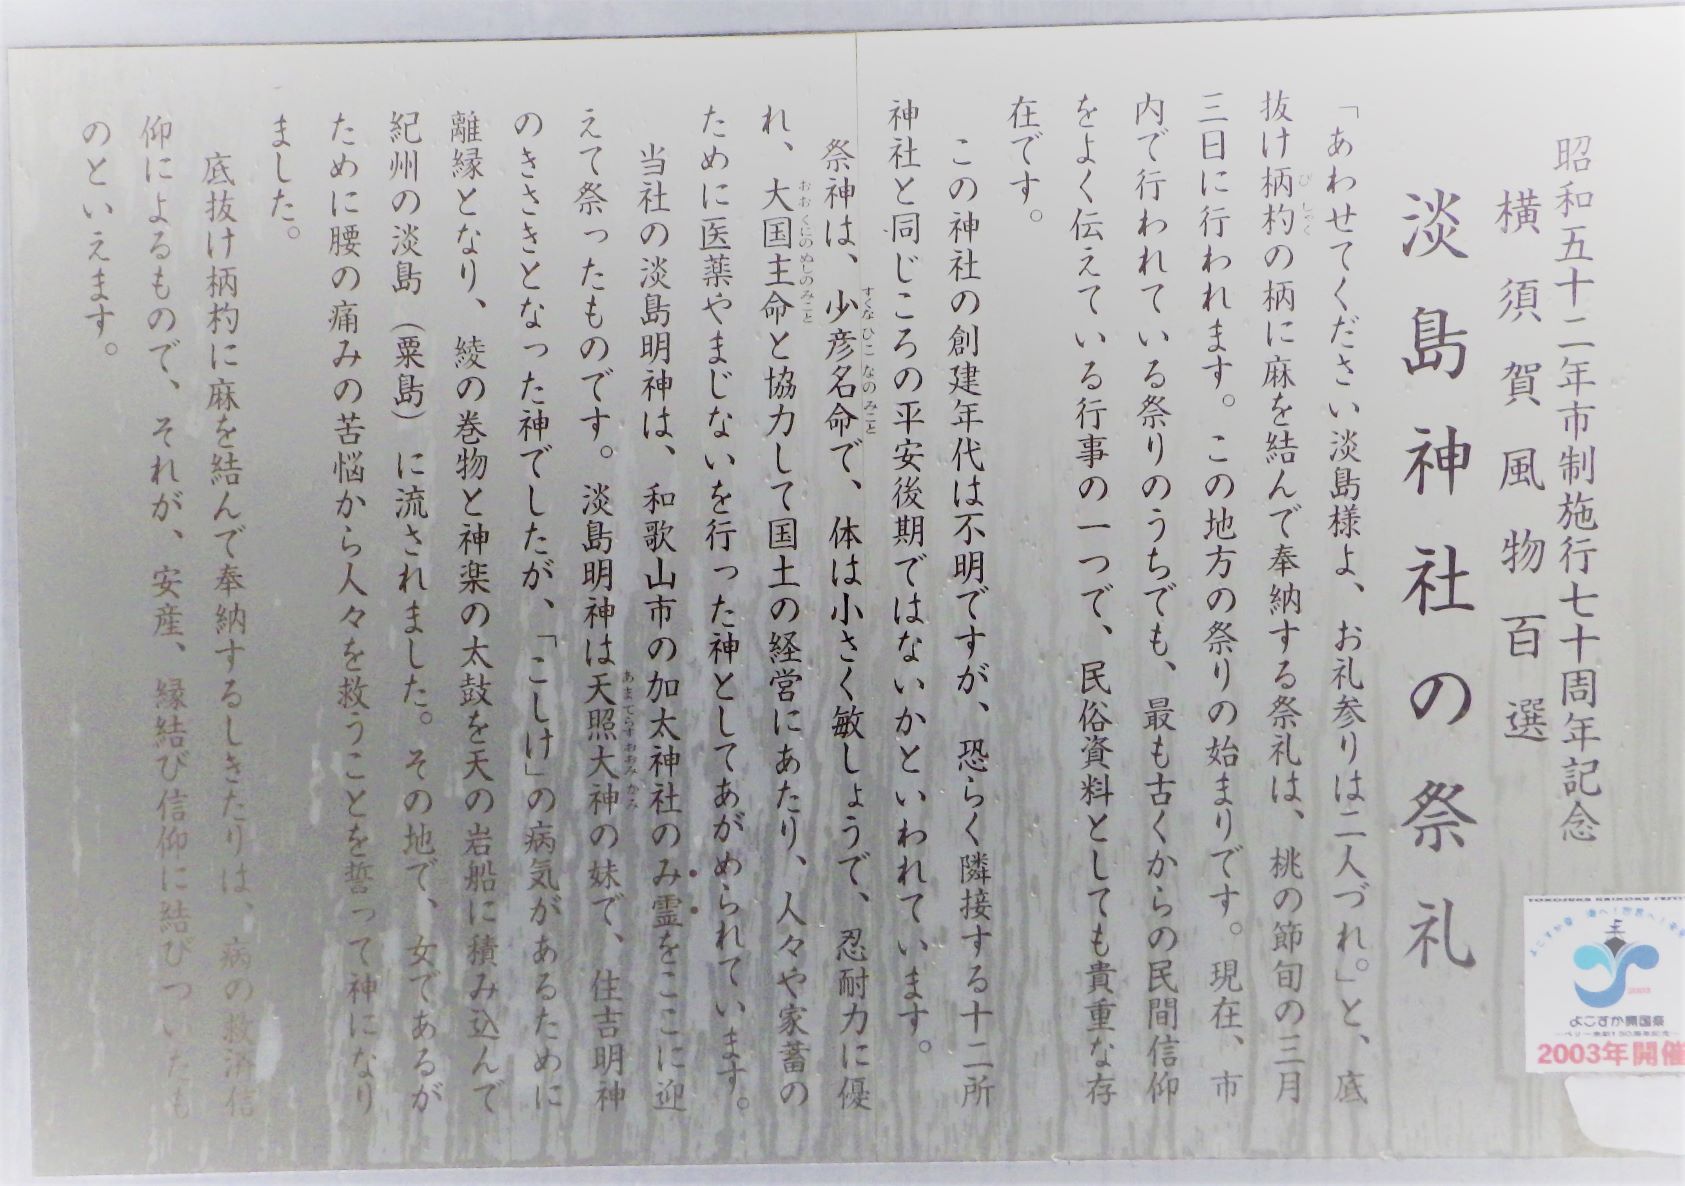 昭和五十二年市制施行七十周年記念
横須賀風物百選
淡島神社の祭礼
「あわせてください淡島様よ、お礼参りは二人づれ。」と、底
抜け柄杓の柄に麻を結んで奉納する祭礼は、桃の節旬の三月
びしゃく
三日に行われます。この地方の祭りの始まりです。現在、市
内で行われている祭りのうちでも、最も古くからの民間信仰
をよく伝えている行事の一つで、民俗資料としても貴重な存
在です。
この神社の創建年代は不明ですが、恐らく隣接する十二所
神社と同じころの平安後期ではないかといわれています。
祭神は、少彦名命で、体は小さく敏しょうで、忍耐力に優
すくなひこなのみこと
れ、大国主命と協力して国土の経営にあたり、人々や家蓄の
おおくにのぬしのみこと
ために医薬やまじないを行った神としてあがめられています。
当社の淡島明神は、和歌山市の加太神社のみ霊をここに迎
えて祭ったものです。淡島明神は天照大神の妹で、住吉明神
あまてらすおおみかみ
のきさきとなった神でしたが、「こしけ」の病気があるために
離縁となり、綾の巻物と神楽の太鼓を天の岩船に積み込んで
紀州の淡島（粟島）に流されました。その地で、女であるが
ために腰の痛みの苦悩から人々を救うことを誓って神になり
ました。
底抜け柄杓に麻を結んで奉納するしきたりは、病の救済信
仰によるもので、それが、安産、縁結び信仰に結びついたも
のといえます。
よこすか開国祭
2003年開催